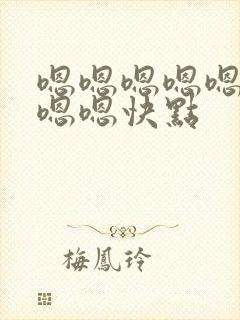 嗯嗯嗯嗯嗯
嗯嗯快點
梅鳳玲